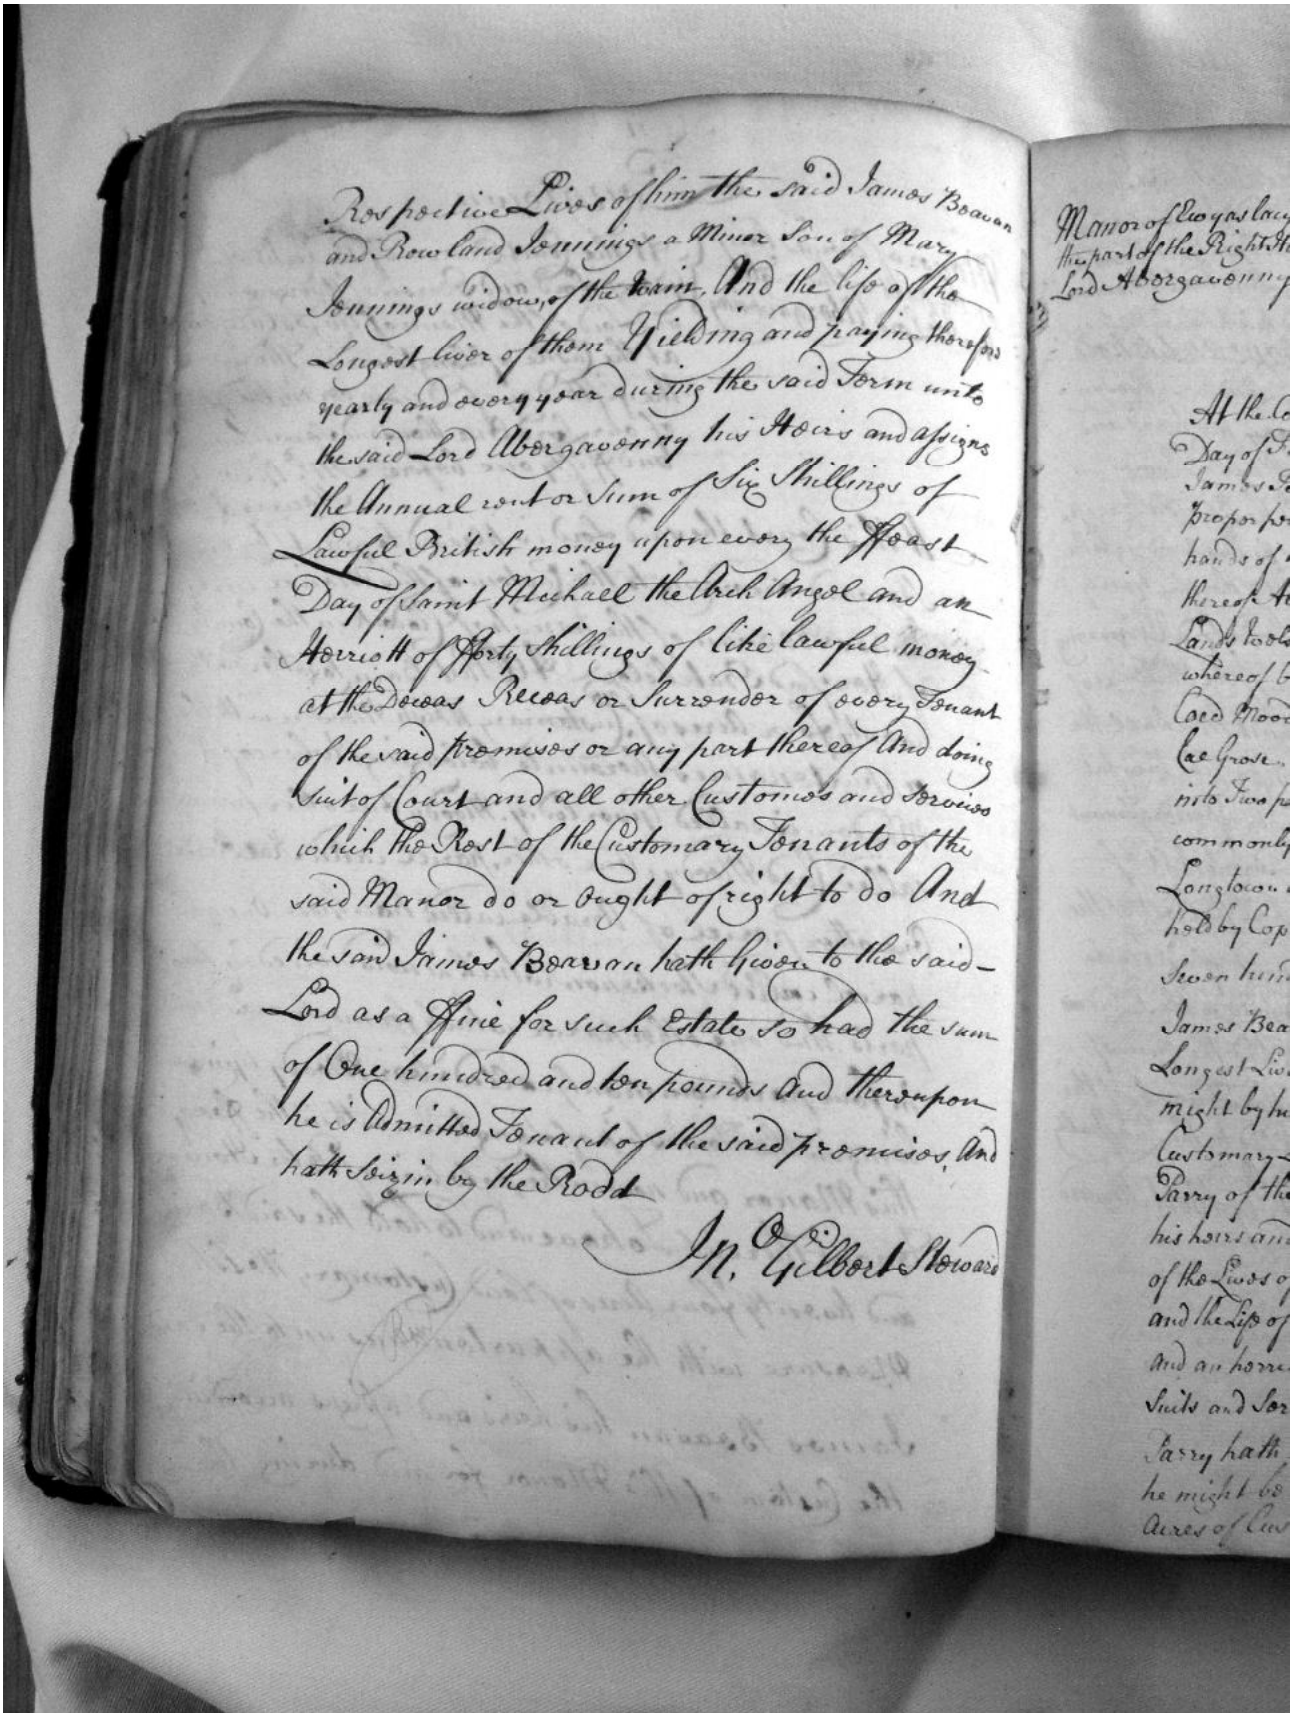 Respective Lives of him the said James Beavan
and Rowland Jennings a Minor Son of Mary
Jennings widow, of the Wain, And the life of the
Longest liver of them Yielding and paying therefore
yearly and every year during the said Term unto
the said Lord Abergavenny his Heirs and assigns
the Annual rent or Sum of Six Shillings of
Lawful British money upon every the ffeast
Day of Saint Michael the Arch Angel and an
Herriott of fforty Shillings of like lawful money
at the Deceas Receas or Surrender of every Tenant
of the said premises or any part thereof And doing
suit of Court and all other Customes and services
which the Rest of the Customary Tenants of the
said Manor do or Ought of right to do And
the said James Beavan hath Given to the said-
Lord as a ffine for such Estate so had the sum
of One hundred and ten pounds And thereupon
he is Admitted Tenant of the said premises, And
hath Seizin by the Rodd
Jn.o Gilbert Steward
Manor of Ewyas lacy
the part of the Right Ho
Lord Abergavenny
At the Co
Day of
James
proper
hands of
thereof
Lands
whereof
Coed Mood
Cae Grose.
into Two
commonly
Longtown
held by Cop
Seven hun
James Bea
Longest Liv
might by hi
Customary
Parry of the
his heirs and
of the Lives of
and the Life of
and an herri
Suits and Ser
Parry hath
he might be
Acres of Cus